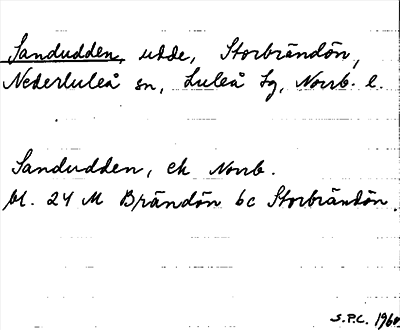 Sandudden, udde, Storbrändön,
Nederluleå sn, Luleå tg, Norrb. l.
Sandudden, ek Norrb.
bl. 24 M Brändön bc Storbrändön.
S.P.C. 1960